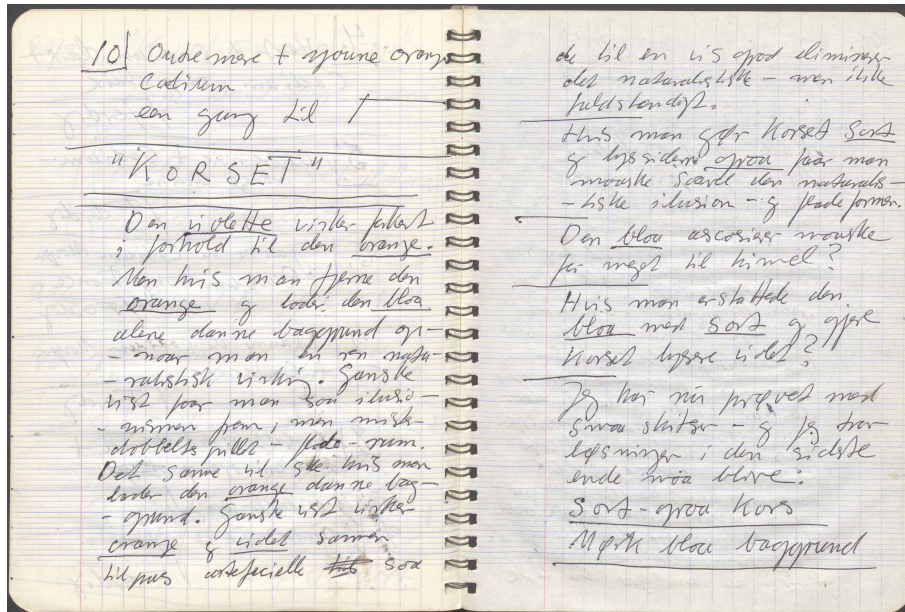 10) Ondemare + orange
Catirum
een gang til
"KORSET"
Den violette virker
i forhold til den orange.
Men hvis man fjerne den
orange og lader den blaa
alene danne baggrund op-
- naar man en ren natu-
- ralistisk virkning. Ganske
vist faar man saa ilusio-
- nismen frem, men mister
dobbelts spillet - flade - rum.
Det samme vil ske hvis man
lader den orange danne bag-
- grund. Ganske vist virker
orange og violet sammen
til pas saa
de til en vis grad eliminerer
det naturalistiske - men ikke
fuldstendigt.
Hvis man gør Korset Sort
og lyssiderne graa faar man
maaske saavel den naturalis-
- tiske ilusion - og fladeformen.
Den blaa ascosierer maaske
for meget til himel?
Hvis man erstattede den
blaa med Sort og gjøre
Korset lysere violet?
Jeg har nu prøvet med
smaa skitser - og jeg tror
løsningen i den sidste
ende maa blive:
Sort - graa Kors
Mørk blaa baggrund